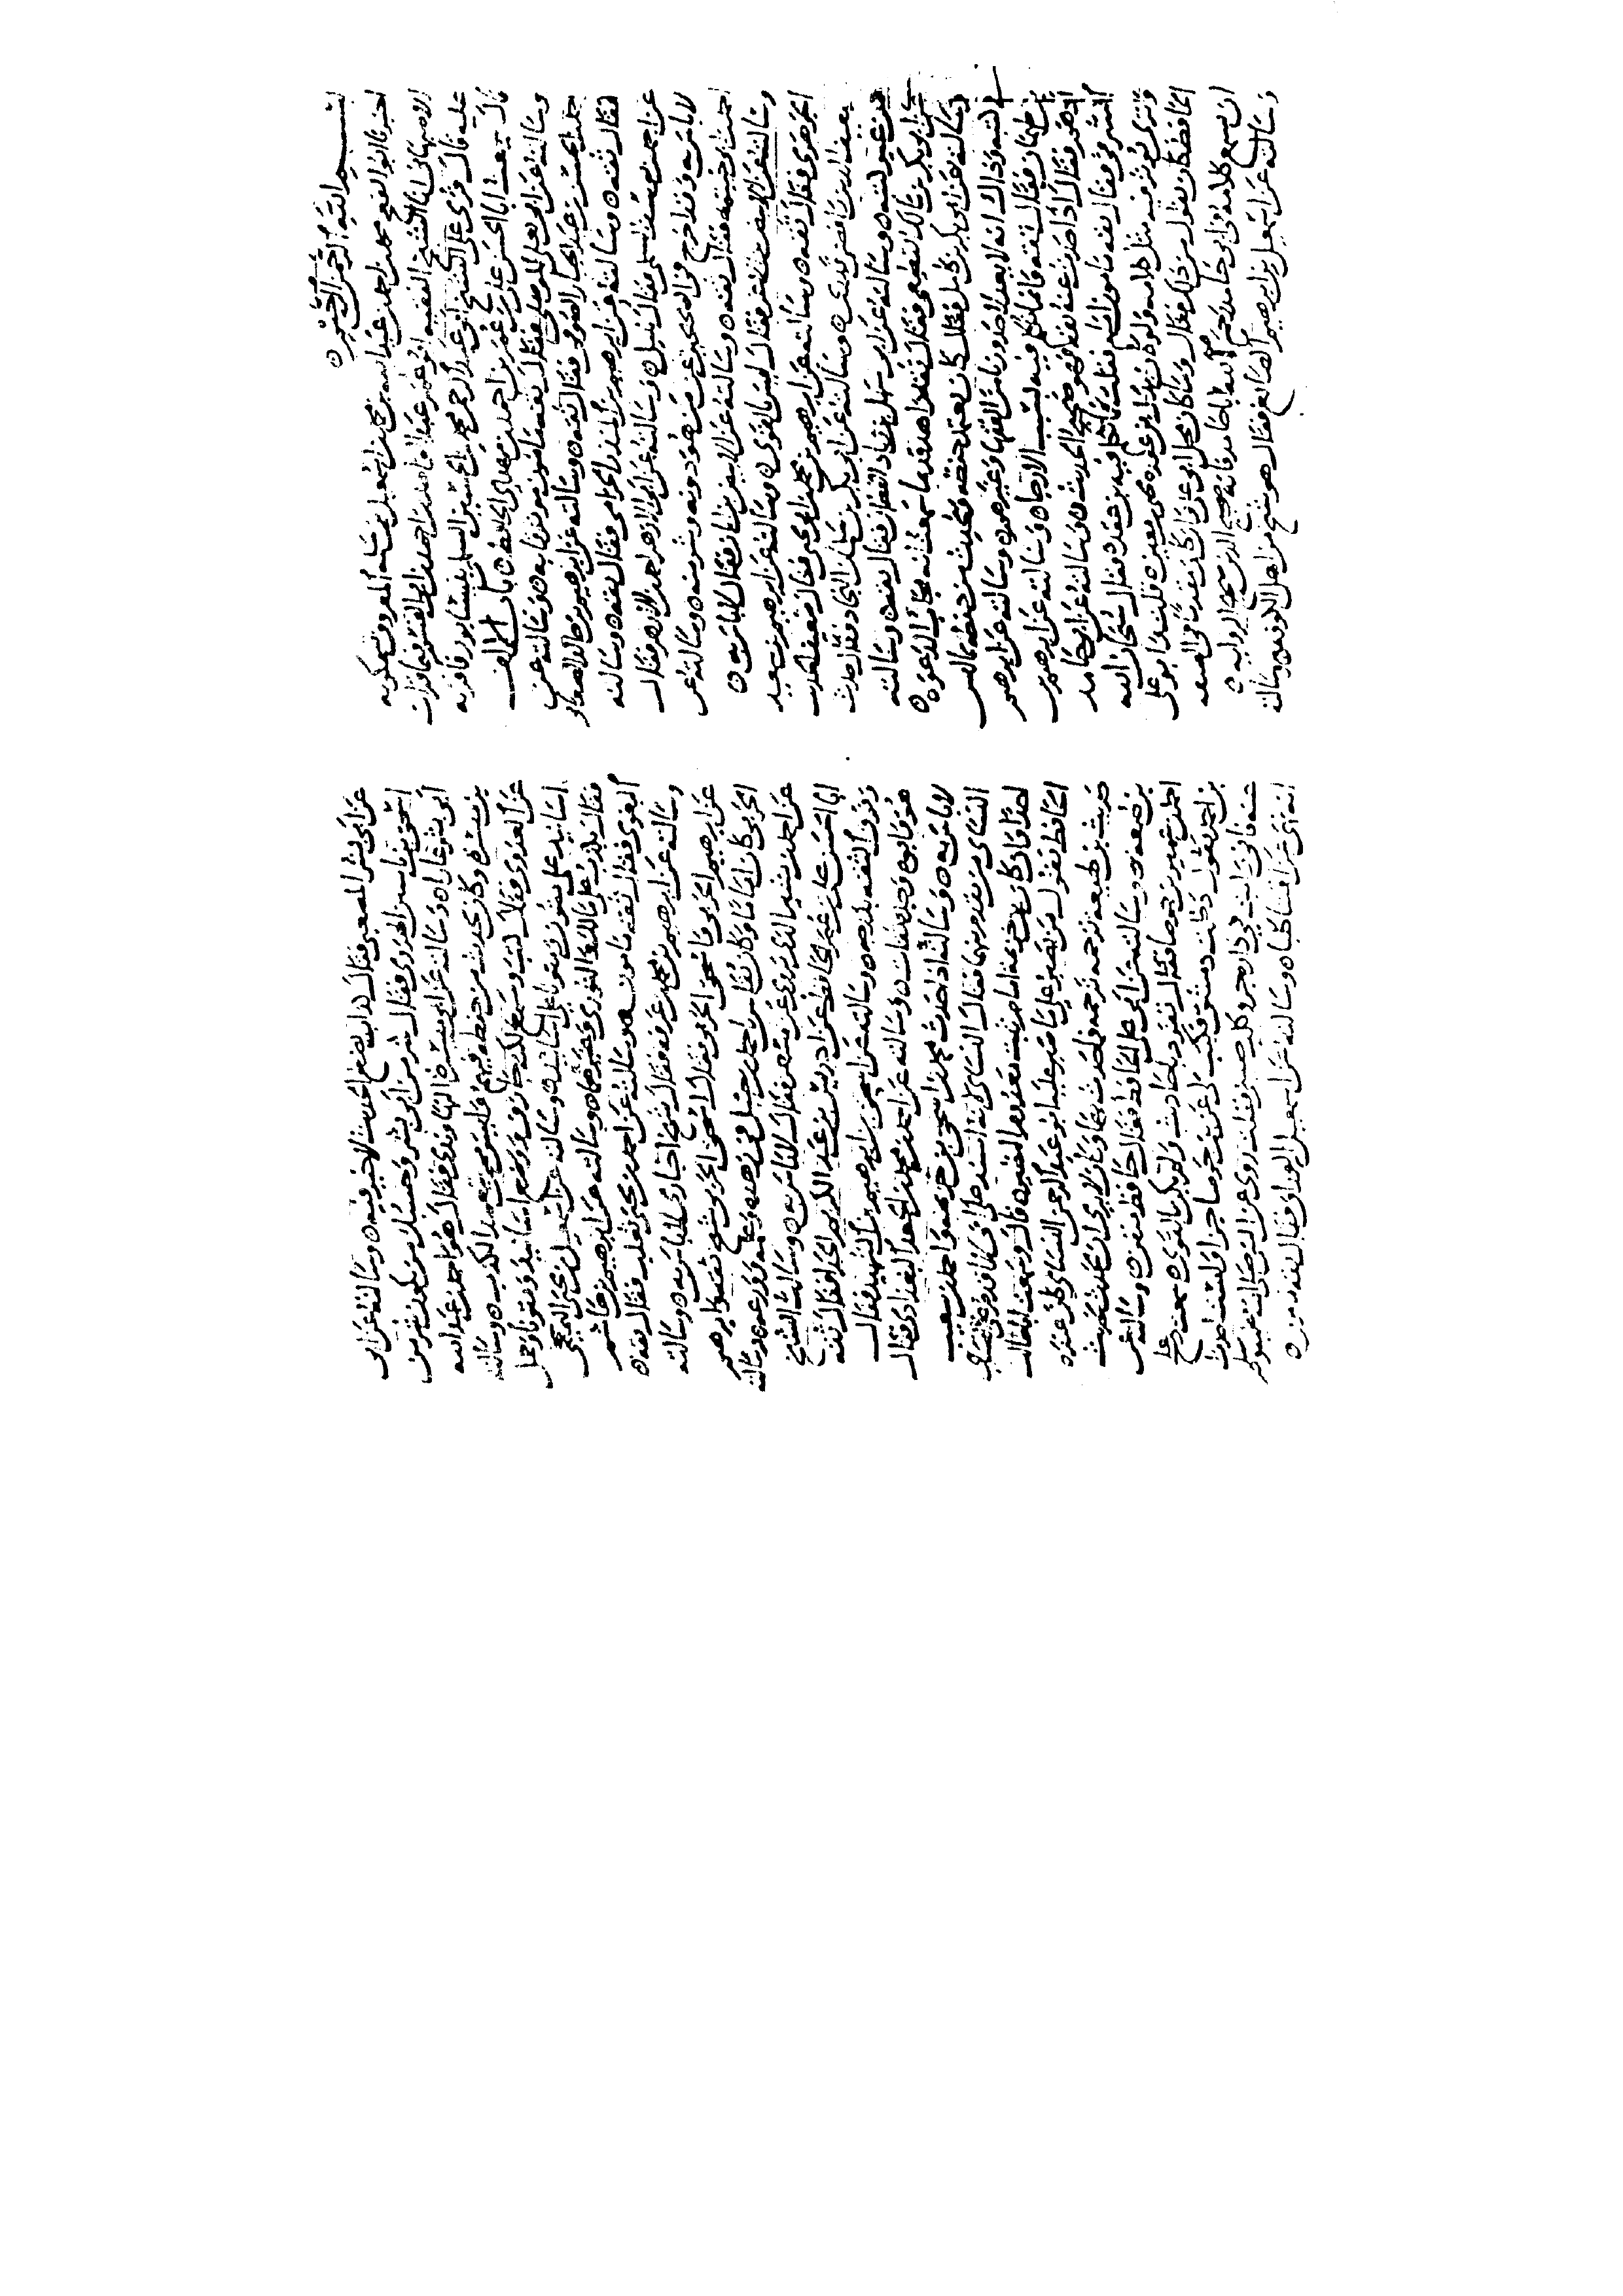 بسم الله الرحمن الرحيم
اخبرنا ابو الفتح محمد بن احمد بن عبد الله بن محمد بن اسمعيل المعروف بسمكويه
الاصبهاني انا الشيخ الفقيه ابو عمر عبد الواحد بن احمد فيما قرات
عليه قال قرئ على الشيخ ابي عبد الرحمن محمد بن الحسين السلمي بنيسابور فاقر به
قال سمعت ابا الحسن علي بن عمر بن احمد بن مهدي الحافظ باب الالف
وسالته عن ابي يعلى الموصلي فقال ثقه مامون موثوق به وسالته عن
احمد بن الحسن بن عبد الجبار الصوفي فقال ثقه وسالته عن ابرهيم بن خالد الصنعاني
فقال ثقه وسالته عن ابرهيم بن المنذر الحزامي فقال ثقه وسالته
عن احمد بن السلمي فقال نبيل وسالته عن ابي الازهر احمد بن الازهر فقال
لا باس به وقد اخرج في الصحيح عن من هو دونه وشر منه وسالته عن
احمد بن ابي خيثمه فقال ثقه وسالته عن الابيض بن ابان فقال لا باس به
وسالته عن الابيض بن الاغر فقال ليس بالقوي وسالته عن ابرهيم بن سعيد
الجوهري فقال ثقه وسالته عن ابرهيم بن محمد بن ابي يحيى فقال ضعيف الحديث
ضعيف الدين رافضي قدري وسالته عن ابي بكر بن سلمان النجاد فقال حدث
من غير كتبه وسالته عن ابي سهل بن زياد القطان فقال ثقه وسالته
عن ابي بكر بن مالك القطيعي فقال ثقه زاهد قديما سمعت انه مجاب الدعوه
وسالته عن ابي بكر بن كامل فقال كان يعتمد حفظه فحدث من حفظه بما ليس
في كتبه وذاك انه لا يعد لاحد وزنا من الفقها وغيرهم وسالته عن ابرهيم
بن طهمان فقال ثقه وانما تكلم فيه بسبب الارجاء وسالته عن ابرهيم بن
ادهم فقال اذا حدث عنه ثقه فهو صحيح الحديث وسالته عن ابي حامد
الشرقي فقال ثقه مامون امام فقلت مما تكلم فيه بن عقده فقال سبحان الله
وترى يؤثر فيه مثل كلامه ولو كان بدل بن عقده يحيى بن معين قلت وابو علي
الحافظ كان يقول من ذلك فقال وما كان محل ابو علي وان كان مقدما في الصنعه
ان يسمع كلامه في ابي حامد رحم الله ابا حامد فانه صحيح الدين صحيح الروايه
وسالته عن اسمعيل بن ابرهيم الصايغ فقال هو شيخ من اهل الكوفه وسالته
عن ابي بشر المصعبي فقال كذاب يضع الحديث لا خير فيه وسالته عن ابي
اسحق بن ياسين الهروي فقال شر من ابي بشر وحسبك من يكون شر من
ابي بشر عارا وسالته عن ابي ميسرة النهاوندي فقال هو احمد بن عبد الله
بن ميسرة وكان يحدث من حفظه فيهم وليس ممن يتعمد الكذب وسالته
عن العدوي فقال كتب وسمع لكنه جازف ووضع اسانيد ومتونا وحمل
اسانيد على متون ومتونا على اسانيد وسالته عن اسمعيل بن يحيى التيمي
فقال يكذب على مالك والثوري وغيرهما وسالته عن ابرهيم بن هاشم
البغوي فقال ثقه مامون وسالته عن احمد بن يحيى ثعلب فقال ثقه
وسالته عن ابرهيم بن محمد بن عرفه فقال شيخ اخباري لا باس به وسالته
عن ابرهيم الحربي واسحق الحربي فقال اسحق الحربي شيخ ثقه وابرهيم
الحربي كان اماما وكان يقاس باحمد بن حنبل في زهده وعلمه وورعه وسالته
عن احمد بن الذي يروي عن فقال لا باس به وسالت الشيخ
ابا الحسن علي بن عمر الحافظ عن ادريس بن عبد الكريم الحداد فقال ثقه
وفوق الثقه بدرجه وسالته عن اسحق بن ابرهيم بن الشهيد فقال
هو وابوه وجده ثقات وسالته عن احمد بن محمد بن الجعد البغدادي فقال
لا باس به وسالته اذا حدث محمد بن اسحق بن خزيمه واحمد بن شعيب
النسائي من يقدم منهما فقال النسائي لانه اسند على اني لا اقدم على النسائي
احدا وان كان بن خزيمه اماما ثبتا معدوم النظير قال وسمعت ابا طالب
الحافظ يقول من يصبر على ما صبر عليه ابو عبد الرحمن النسائي كان عنده
حديث بن لهيعه ترجمه ترجمه فما حدث بها وكان لا يرى ان يحدث بحديث
بن لهيعه وسالته عن ابي علي الحافظ فقال حافظ متقن وسالته عن
احمد بن عمير بن جوصا فقال تفرد باحاديث ولم يكن بالقوي سمعت دعلج
بن احمد يقول دخلت دمشق فكتب لي عن بن جوصا جزا ولست احدث
عنه فاني رايت في داره جرو كلب صيني فقلت روي عن النبي صلى الله عليه وسلم
انه نهى عن اقتنا كلب وسالته عن اسمعيل الوراق فقال ثقه